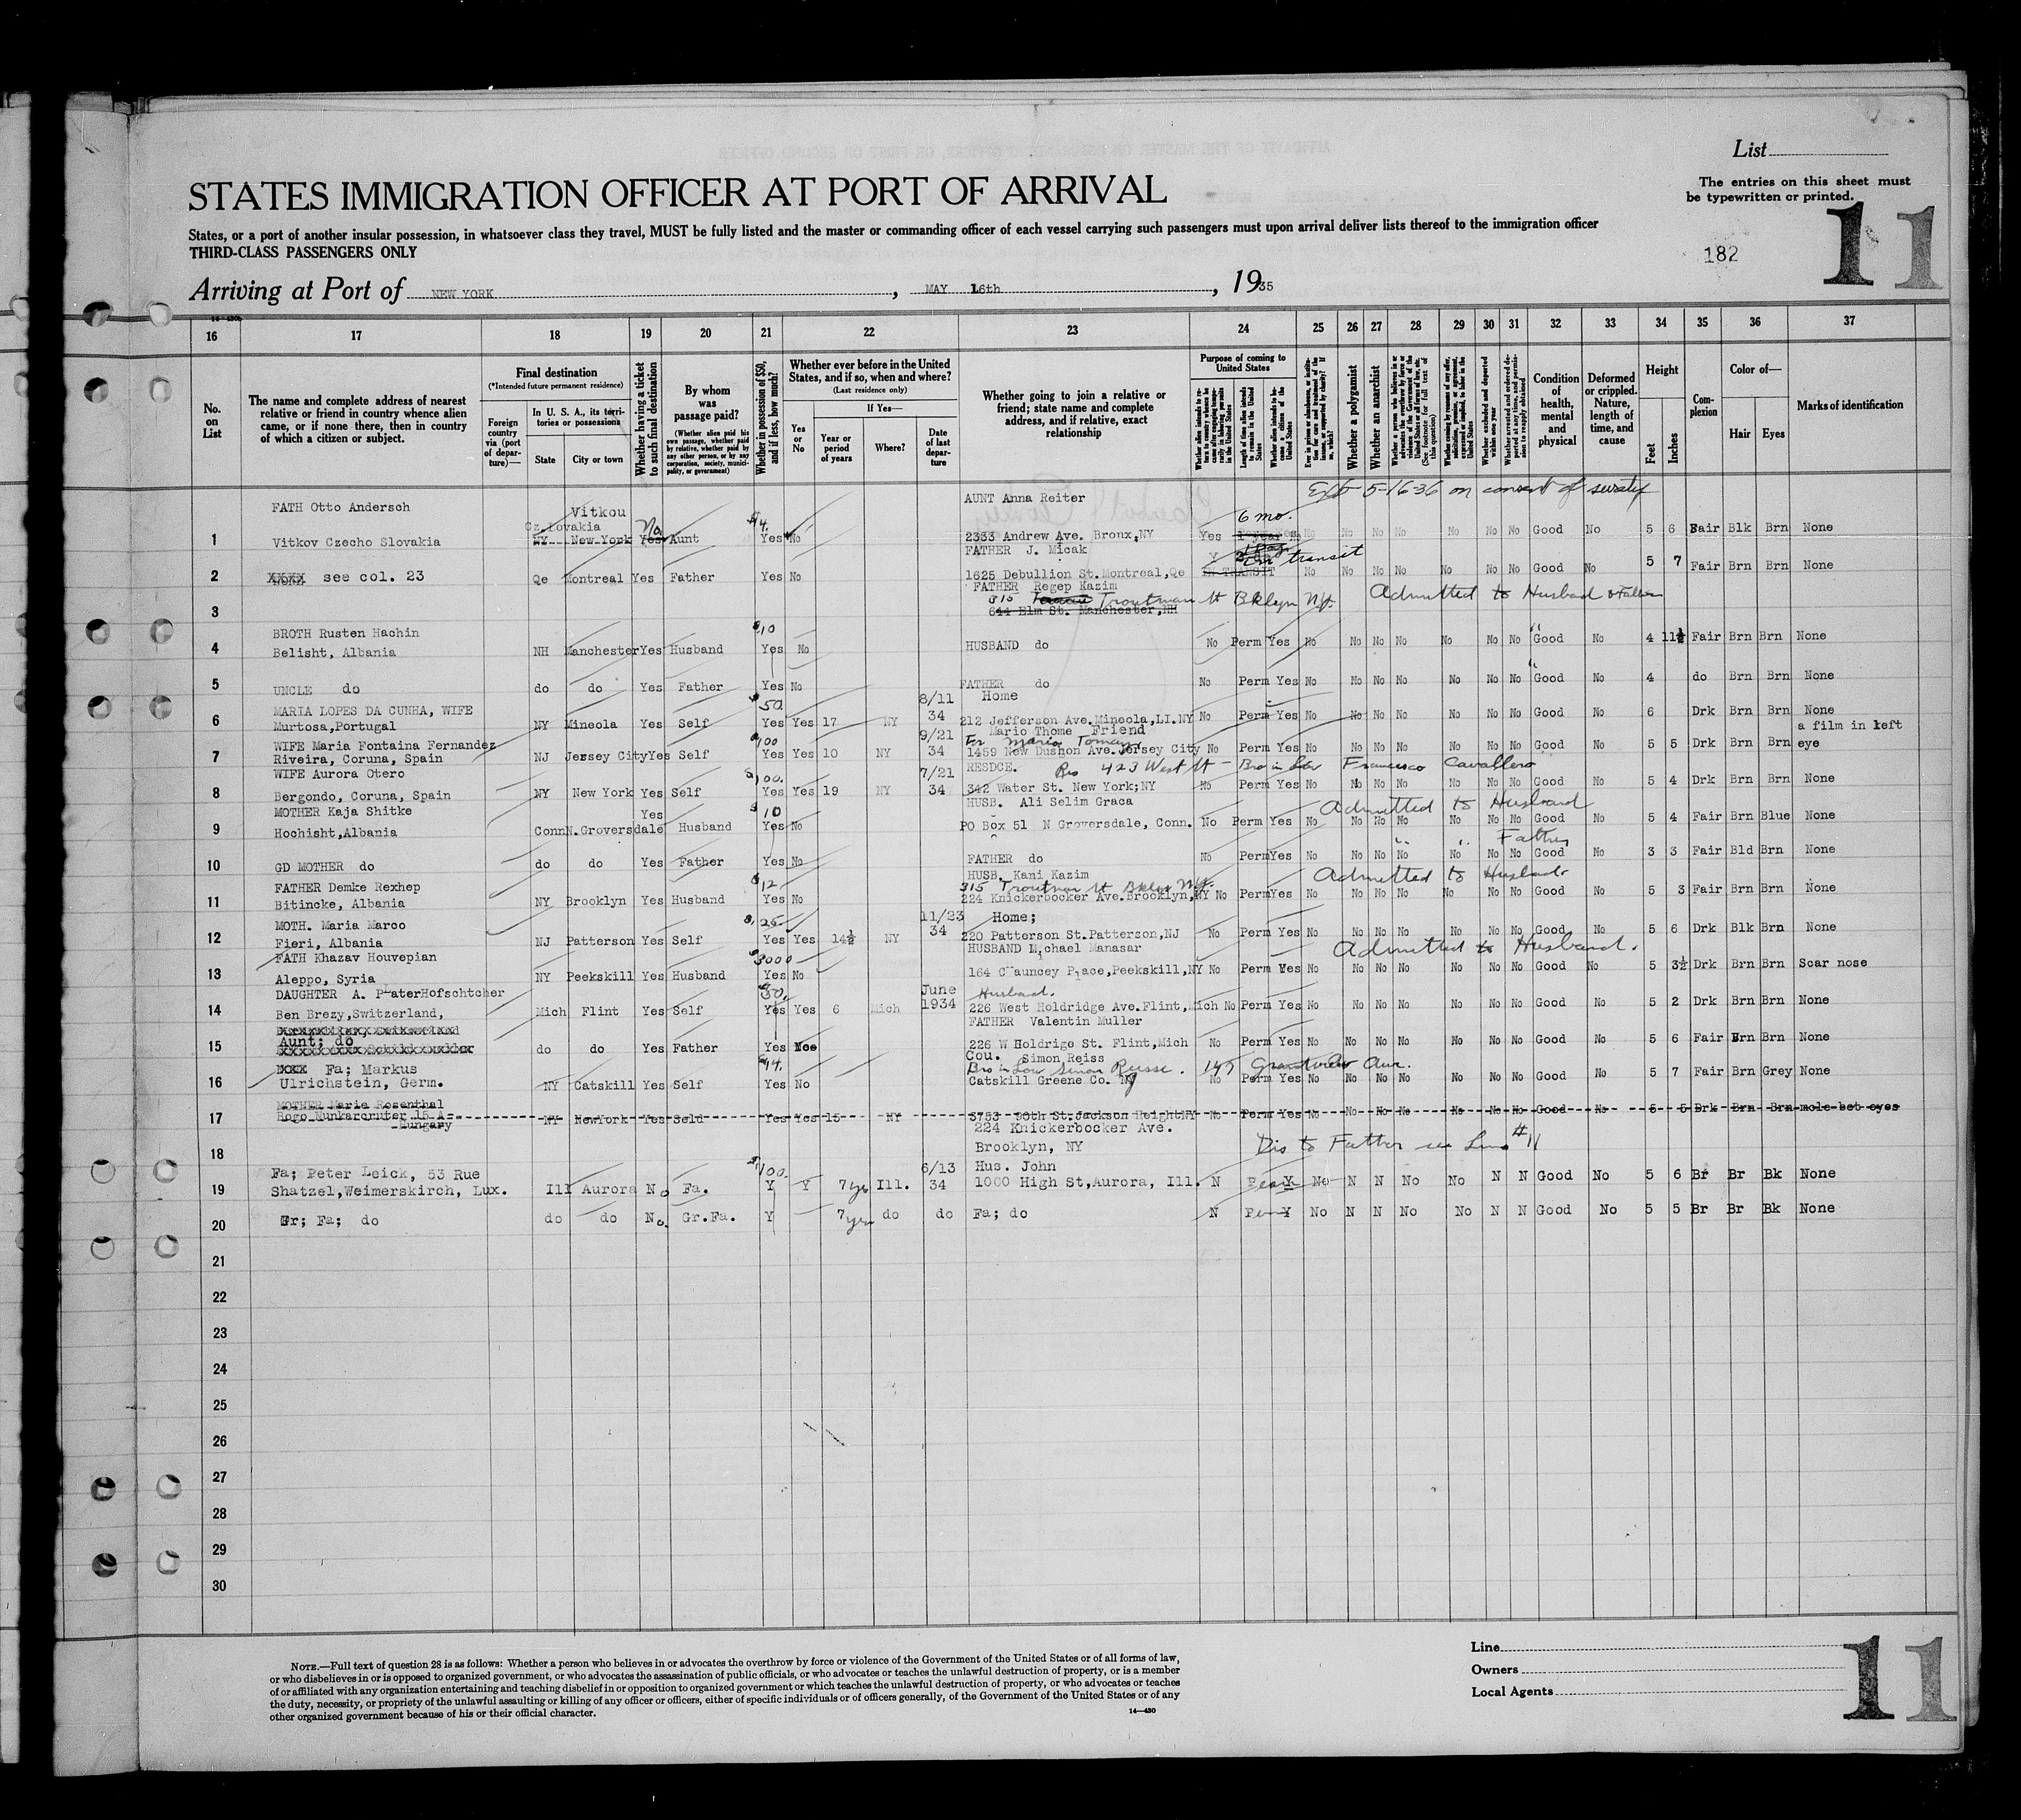 List
The entries on this sheet must
be typewritten or printed.
STATES IMMIGRATION OFFICER AT PORT OF ARRIVAL
States, or a port of another insular possession, in whatsoever class they travel, MUST be fully listed and the master or commanding officer of each vessel carrying such passengers must upon arrival deliver lists thereof to the immigration officer
THIRD-CLASS PASSENGERS ONLY
182
11
Arriving at Port of NEW YORK, MAY 16th, 1935
16 17 18 19 20 21 22 23 24 25 26 27 28 29 30 31 32 33 34 35 36 37
No. on List
The name and complete address of nearest relative or friend in country whence alien came, or if none there, then in country of which a citizen or subject.
Final destination
(*Intended future permanent residence)
Foreign country via (port of departure)—
In U. S. A., its territories or possessions
State
City or town
Whether having a ticket to such final destination
By whom was passage paid?
(Whether alien paid his own passage, whether paid by relative, whether paid by any other person, or by any corporation, society, municipality, or government)
Whether in possession of $50, and if less, how much?
Whether ever before in the United States, and if so, when and where?
(Last residence only)
Yes or No
If Yes—
Year or period of years
Where?
Date of last departure
Whether going to join a relative or friend; state name and complete address, and if relative, exact relationship
Purpose of coming to United States
Length of time alien intends to remain in the United States
Whether alien intends to become a citizen of the United States
Whether a polygamist
Whether an anarchist
Condition of health, mental and physical
Deformed or crippled. Nature, length of time, and cause
Height
Feet
Inches
Complexion
Color of—
Hair
Eyes
Marks of identification
FATH Otto Andersch Vitkou AUNT Anna Reiter Ext 5-16-36 on consent of surety
Cz.lovakia No $4. 6 mo.
1 Vitkov Czecho Slovakia NY New York Yes Aunt Yes No 2333 Andrew Ave. Bronx,NY Yes No No No No No No No Good No 5 6 Fair Blk Brn None
FATHER J. Micak Y in transit
2 XXXX see col. 23 Qe Montreal Yes Father Yes No 1625 Debullion St. Montreal,Qe IN TRANSIT No No No No No No No Good No 5 7 Fair Brn Brn None
FATHER Regep Kazim
315 Troutman St Bklyn NY. Admitted to Husband & Father
3 644 Elm St. Manchester,NH
BROTH Rusten Hachin $10
4 Belisht, Albania NH Manchester Yes Husband Yes No HUSBAND do No Perm Yes No No No No No No No Good No 4 11½ Fair Brn Brn None
5 UNCLE do do do Yes Father Yes No FATHER do No Perm Yes No No No No No No No Good No 4 do Brn Brn None
MARIA LOPES DA CUNHA, WIFE $50 8/11 Home
6 Murtosa,Portugal NY Mineola Yes Self Yes Yes 17 NY 34 212 Jefferson Ave.Mineola,LI.NY No Perm Yes No No No No No No No Good No 6 Drk Brn Brn None
WIFE Maria Fontaina Fernandez $100 9/21 Mario Thome Friend a film in left
7 Riveira, Coruna, Spain NJ Jersey City Yes Self Yes Yes 10 NY 34 1459 New Dushon Ave.Jersey City No Perm Yes No No No No No No No Good No 5 5 Drk Brn Brn eye
WIFE Aurora Otero $100. 7/21 RESDCE. Res 423 West St - Bro in law Francisco Cavallero
8 Bergondo, Coruna, Spain NY New York Yes Self Yes Yes 19 NY 34 342 Water St. New York;NY No Perm Yes No No No No No No No Good No 5 4 Drk Brn Brn None
MOTHER Kaja Shitke Yes $10 HUSB. Ali Selim Graca Admitted to Husband
9 Hochisht,Albania Conn N.Groversdale Husband Yes No PO Box 51 N Groversdale, Conn. No Perm Yes No No No No No No No Good No 5 4 Fair Brn Blue None
" " Father
10 GD MOTHER do do do Yes Father Yes No FATHER do No Perm Yes No No No No No No No Good No 3 3 Fair Bld Brn None
FATHER Demke Rexhep $12 HUSB. Kani Kazim Admitted to Husband
315 Troutman St Bklyn NY.
11 Bitincke, Albania NY Brooklyn Yes Husband Yes No 224 Knickerbocker Ave.Brooklyn,NY No Perm Yes No No No No No No No Good No 5 3 Fair Brn Brn None
MOTH. Maria Marco $25 11/23 Home;
12 Fieri, Albania NJ Patterson Yes Self Yes Yes 14½ NY 34 220 Patterson St.Patterson,NJ No Perm Yes No No No No No No No Good No 5 6 Drk Blk Brn None
FATH Khazav Houvepian $3000 HUSBAND Michael Manasar Admitted to Husband.
13 Aleppo, Syria NY Peekskill Yes Husband Yes No 164 Chauncey Place,Peekskill,NY No Perm Yes No No No No No No No Good No 5 3½ Drk Brn Brn Scar nose
DAUGHTER A. PlaterHofschtcher $50. June Husband.
14 Ben Brezy,Switzerland, Mich Flint Yes Self Yes Yes 6 Mich 1934 226 West Holdridge Ave.Flint,Mich No Perm Yes No No No No No No No Good No 5 2 Drk Brn Brn None
FATHER Valentin Muller
Aunt; do
15 do do Yes Father Yes 226 W Holdrige St. Flint,Mich No Perm Yes No No No No No No No Good No 5 6 Fair Brn Brn None
XXXX Fa; Markus $44. Cou. Simon Reiss
Bro in Law Simon Reisse. 147 Grandview Ave.
16 Ulrichstein, Germ. NY Catskill Yes Self Yes No Catskill Greene Co. NY No Perm Yes No No No No No No No Good No 5 7 Fair Brn Grey None
MOTHER Marie Rosenthal
17 NY NewYork Yes Seld Yes Yes 15 NY 3753 90th St.Jackson HeightNY No Perm Yes No No No No No No No Good No 5 5 Drk Brn Brn mole bet eyes
Hungary
224 Knickerbocker Ave.
18 Brooklyn, NY Dis to Father see Line #11
Fa; Peter Leick, 53 Rue $100. 6/13 Hus. John
19 Shatzel,Weimerskirch, Lux. Ill Aurora No Fa. Y Y 7 yrs Ill. 34 1000 High St,Aurora, Ill. N Perm Y No N N No No N N Good No 5 6 Br Br Bk None
20 Gr; Fa; do do do No. Gr.Fa. Y 7 yrs do do Fa; do N Perm Y No N N No No N N Good No 5 5 Br Br Bk None
21
22
23
24
25
26
27
28
29
30
NOTE.—Full text of question 28 is as follows: Whether a person who believes in or advocates the overthrow by force or violence of the Government of the United States or of all forms of law,
or who disbelieves in or is opposed to organized government, or who advocates the assassination of public officials, or who advocates or teaches the unlawful destruction of property, or is a member
of or affiliated with any organization entertaining and teaching disbelief in or opposition to organized government or which teaches the unlawful destruction of property, or who advocates or teaches
the duty, necessity, or propriety of the unlawful assaulting or killing of any officer or officers, either of specific individuals or of officers generally, of the Government of the United States or of any
other organized government because of his or their official character.
14—430
Line
Owners
Local Agents
11